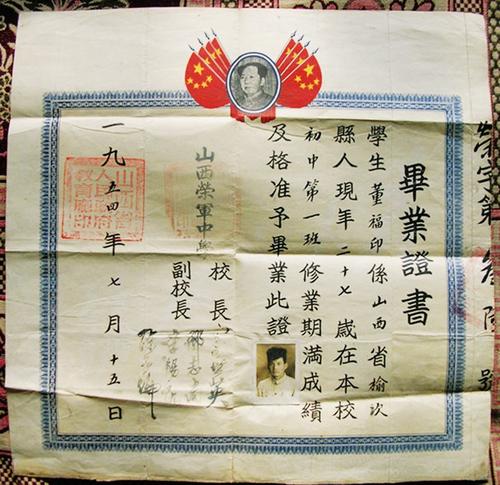 榮字第 號
畢業證書
學生董福印係山西省榆次
縣人現年二十七歲在本校
初中第一班修業期滿成績
及格准予畢業此證
山西榮軍中學
校長
副校長
一九五四年七月十五日
山西省
人民政府
教育廳印